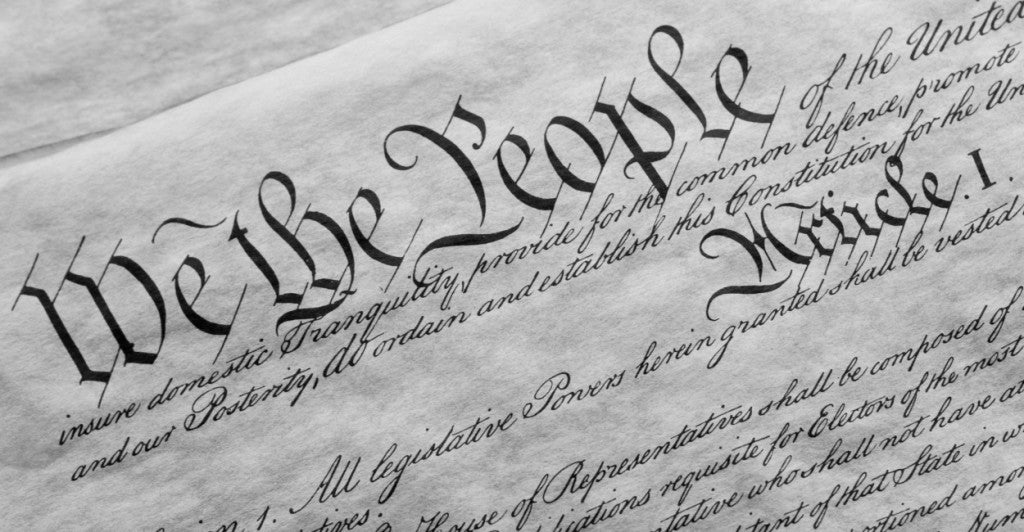 We the People of the United
insure domestic Tranquility, provide for the common defence, promote
and our Posterity, do ordain and establish this Constitution for the Un
Article. I.
1. All legislative Powers herein granted shall be vested
House of Representatives shall be composed of
requisite for Electors of the most
who shall not have
of that State in
among